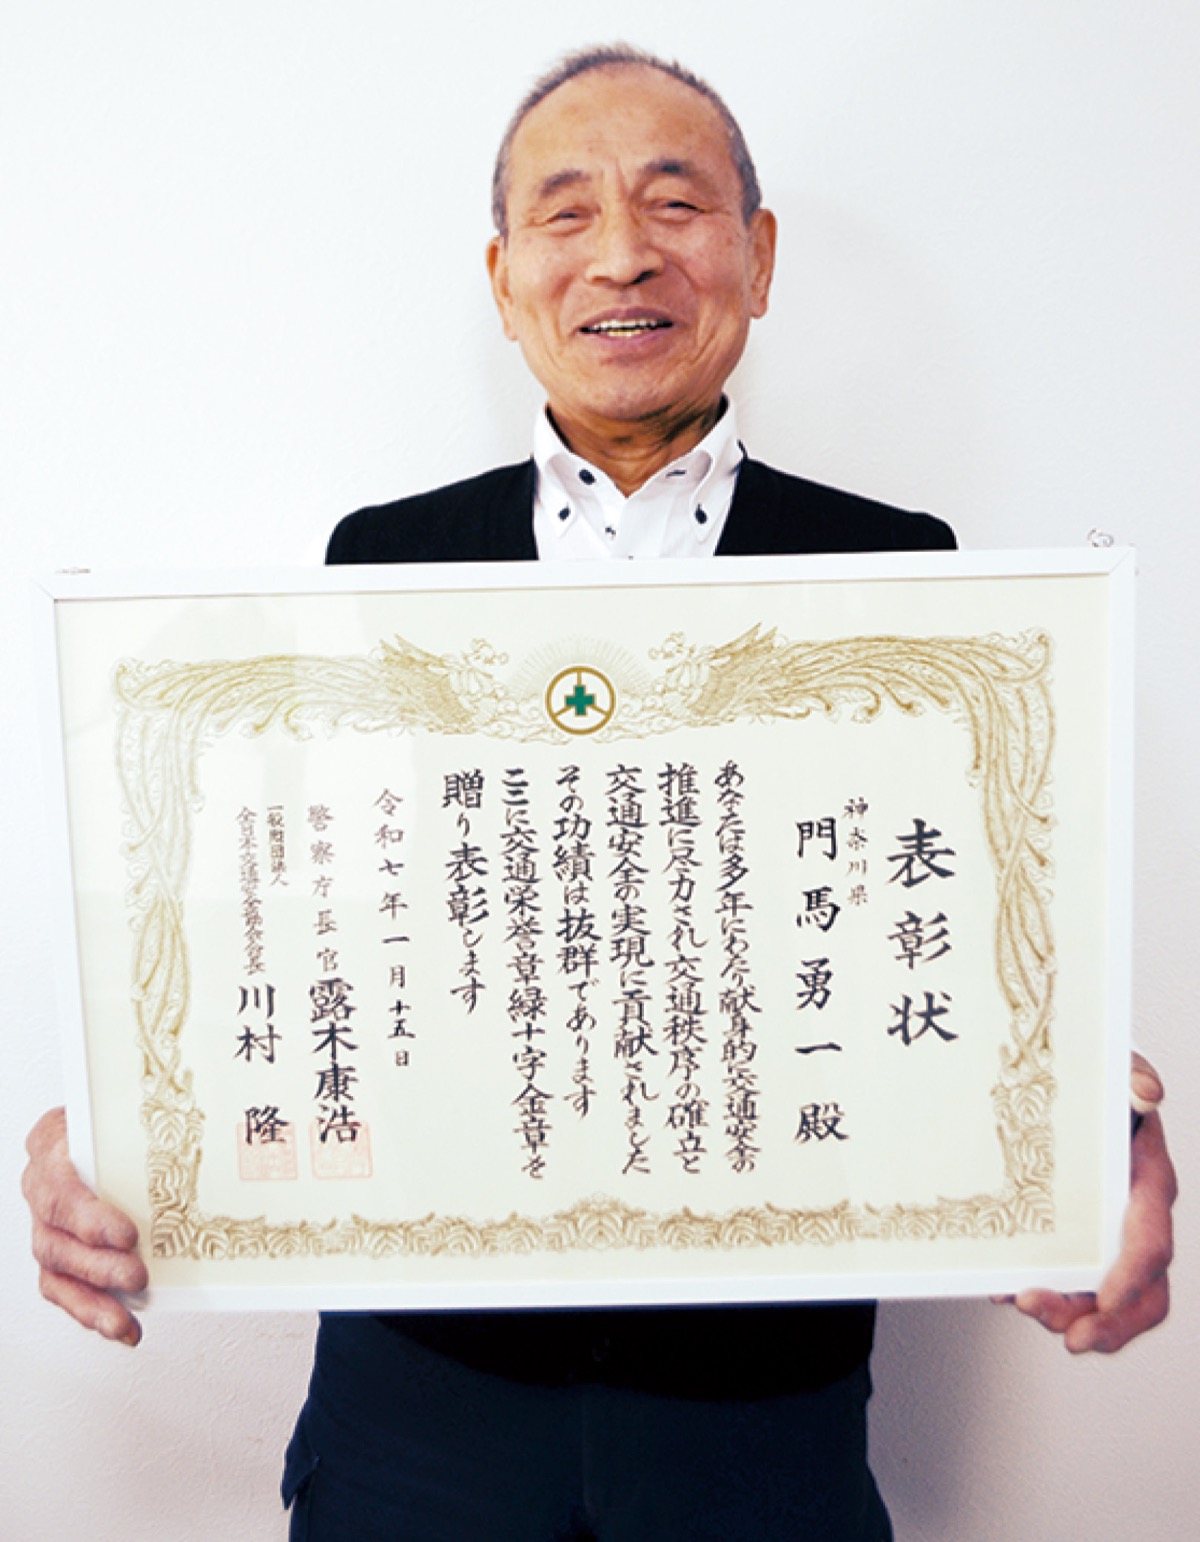 表彰状
神奈川県
門馬勇一殿
あなたは多年にわたり献身的に交通安全の
推進に尽力され交通秩序の確立と
交通安全の実現に貢献されました
その功績は抜群であります
ここに交通栄誉章緑十字金章を
贈り表彰します
令和七年一月十五日
警察庁長官 露木康浩
一般財団法人
全日本交通安全協会会長 川村 隆